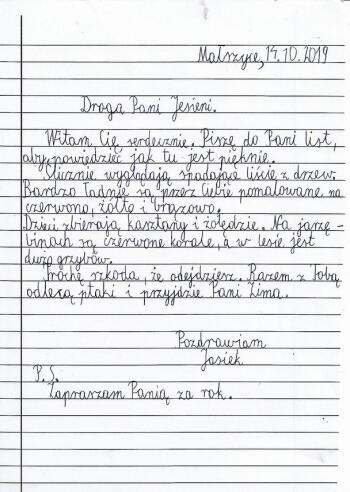 Małszyce, 14.10.2019
Droga Pani Jesieni.
Witam Cię serdecznie. Piszę do Pani list,
aby powiedzieć jak tu jest pięknie.
Ślicznie wyglądają spadające liście z drzew.
Bardzo ładnie są przez Ciebie pomalowane na
czerwono, żółto i brązowo.
Dzieci zbierają kasztany i żołędzie. Na jarzę-
binach są czerwone korale, a w lesie jest
dużo grzybów.
Trochę szkoda, że odejdziesz. Razem z Tobą
odlecą ptaki i przyjdzie Pani Zima.
Pozdrawiam
Jasiek
P.S.
Zapraszam Panią za rok.